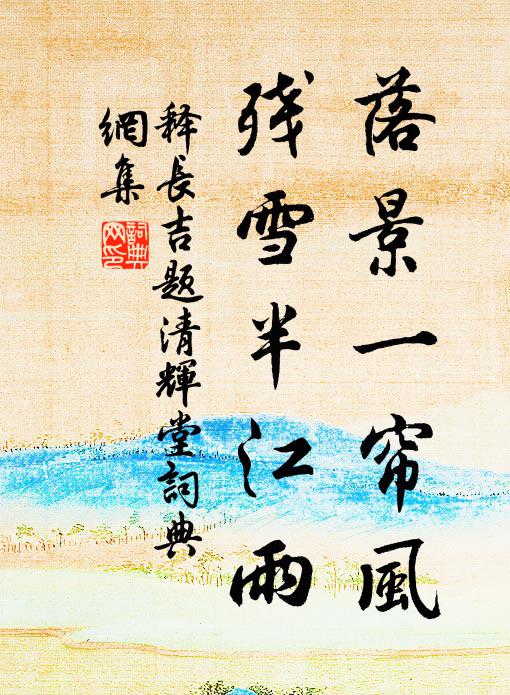 落景一帘風
残雪半江雨
釋長吉題清輝堂詞典
網集
詞典
网印